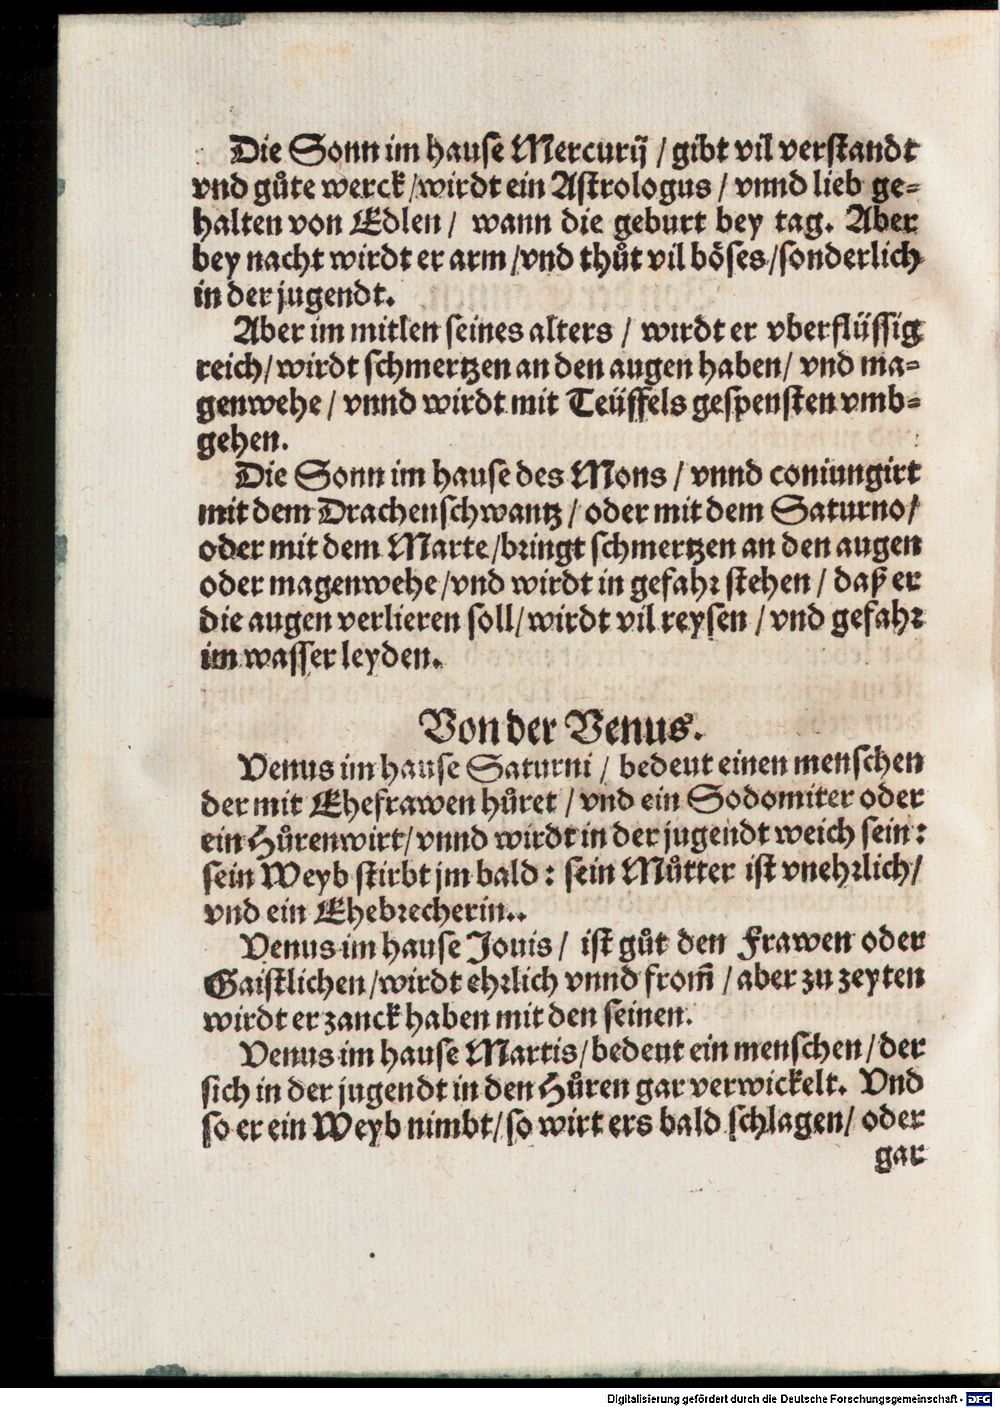 Die Sonn im hause Mercurij / gibt vil verstandt
vnd gůte werck / wirdt ein Astrologus / vnnd lieb ge⸗
halten von Edlen / wann die geburt bey tag. Aber
bey nacht wirdt er arm / vnd thůt vil böses / sonderlich
in der jugendt.
Aber im mitlen seines alters / wirdt er vberflüssig
reich / wirdt schmertzen an den augen haben / vnd ma⸗
genwehe / vnnd wirdt mit Teüffels gespensten vmb⸗
gehen.
Die Sonn im hause des Mons / vnnd coniungirt
mit dem Drachenschwantz / oder mit dem Saturno /
oder mit dem Marte / bringt schmertzen an den augen
oder magenwehe / vnd wirdt in gefahr stehen / daß er
die augen verlieren soll / wirdt vil reysen / vnd gefahr
im wasser leyden.
Von der Venus.
Venus im hause Saturni / bedeut einen menschen
der mit Ehefrawen hůret / vnd ein Sodomiter oder
ein Hůrenwirt / vnnd wirdt in der jugendt weich sein:
sein Weyb stirbt jm bald: sein Můtter ist vnehrlich /
vnd ein Ehebrecherin..
Venus im hause Jouis / ist gůt den Frawen oder
Gaistlichen / wirdt ehrlich vnnd from̃ / aber zu zeyten
wirdt er zanck haben mit den seinen.
Venus im hause Martis / bedeut ein menschen / der
sich in der jugendt in den Hůren gar verwickelt. Vnd
so er ein Weyb nimbt / so wirt ers bald schlagen / oder
gar
Digitalisierung gefördert durch die Deutsche Forschungsgemeinschaft - DFG